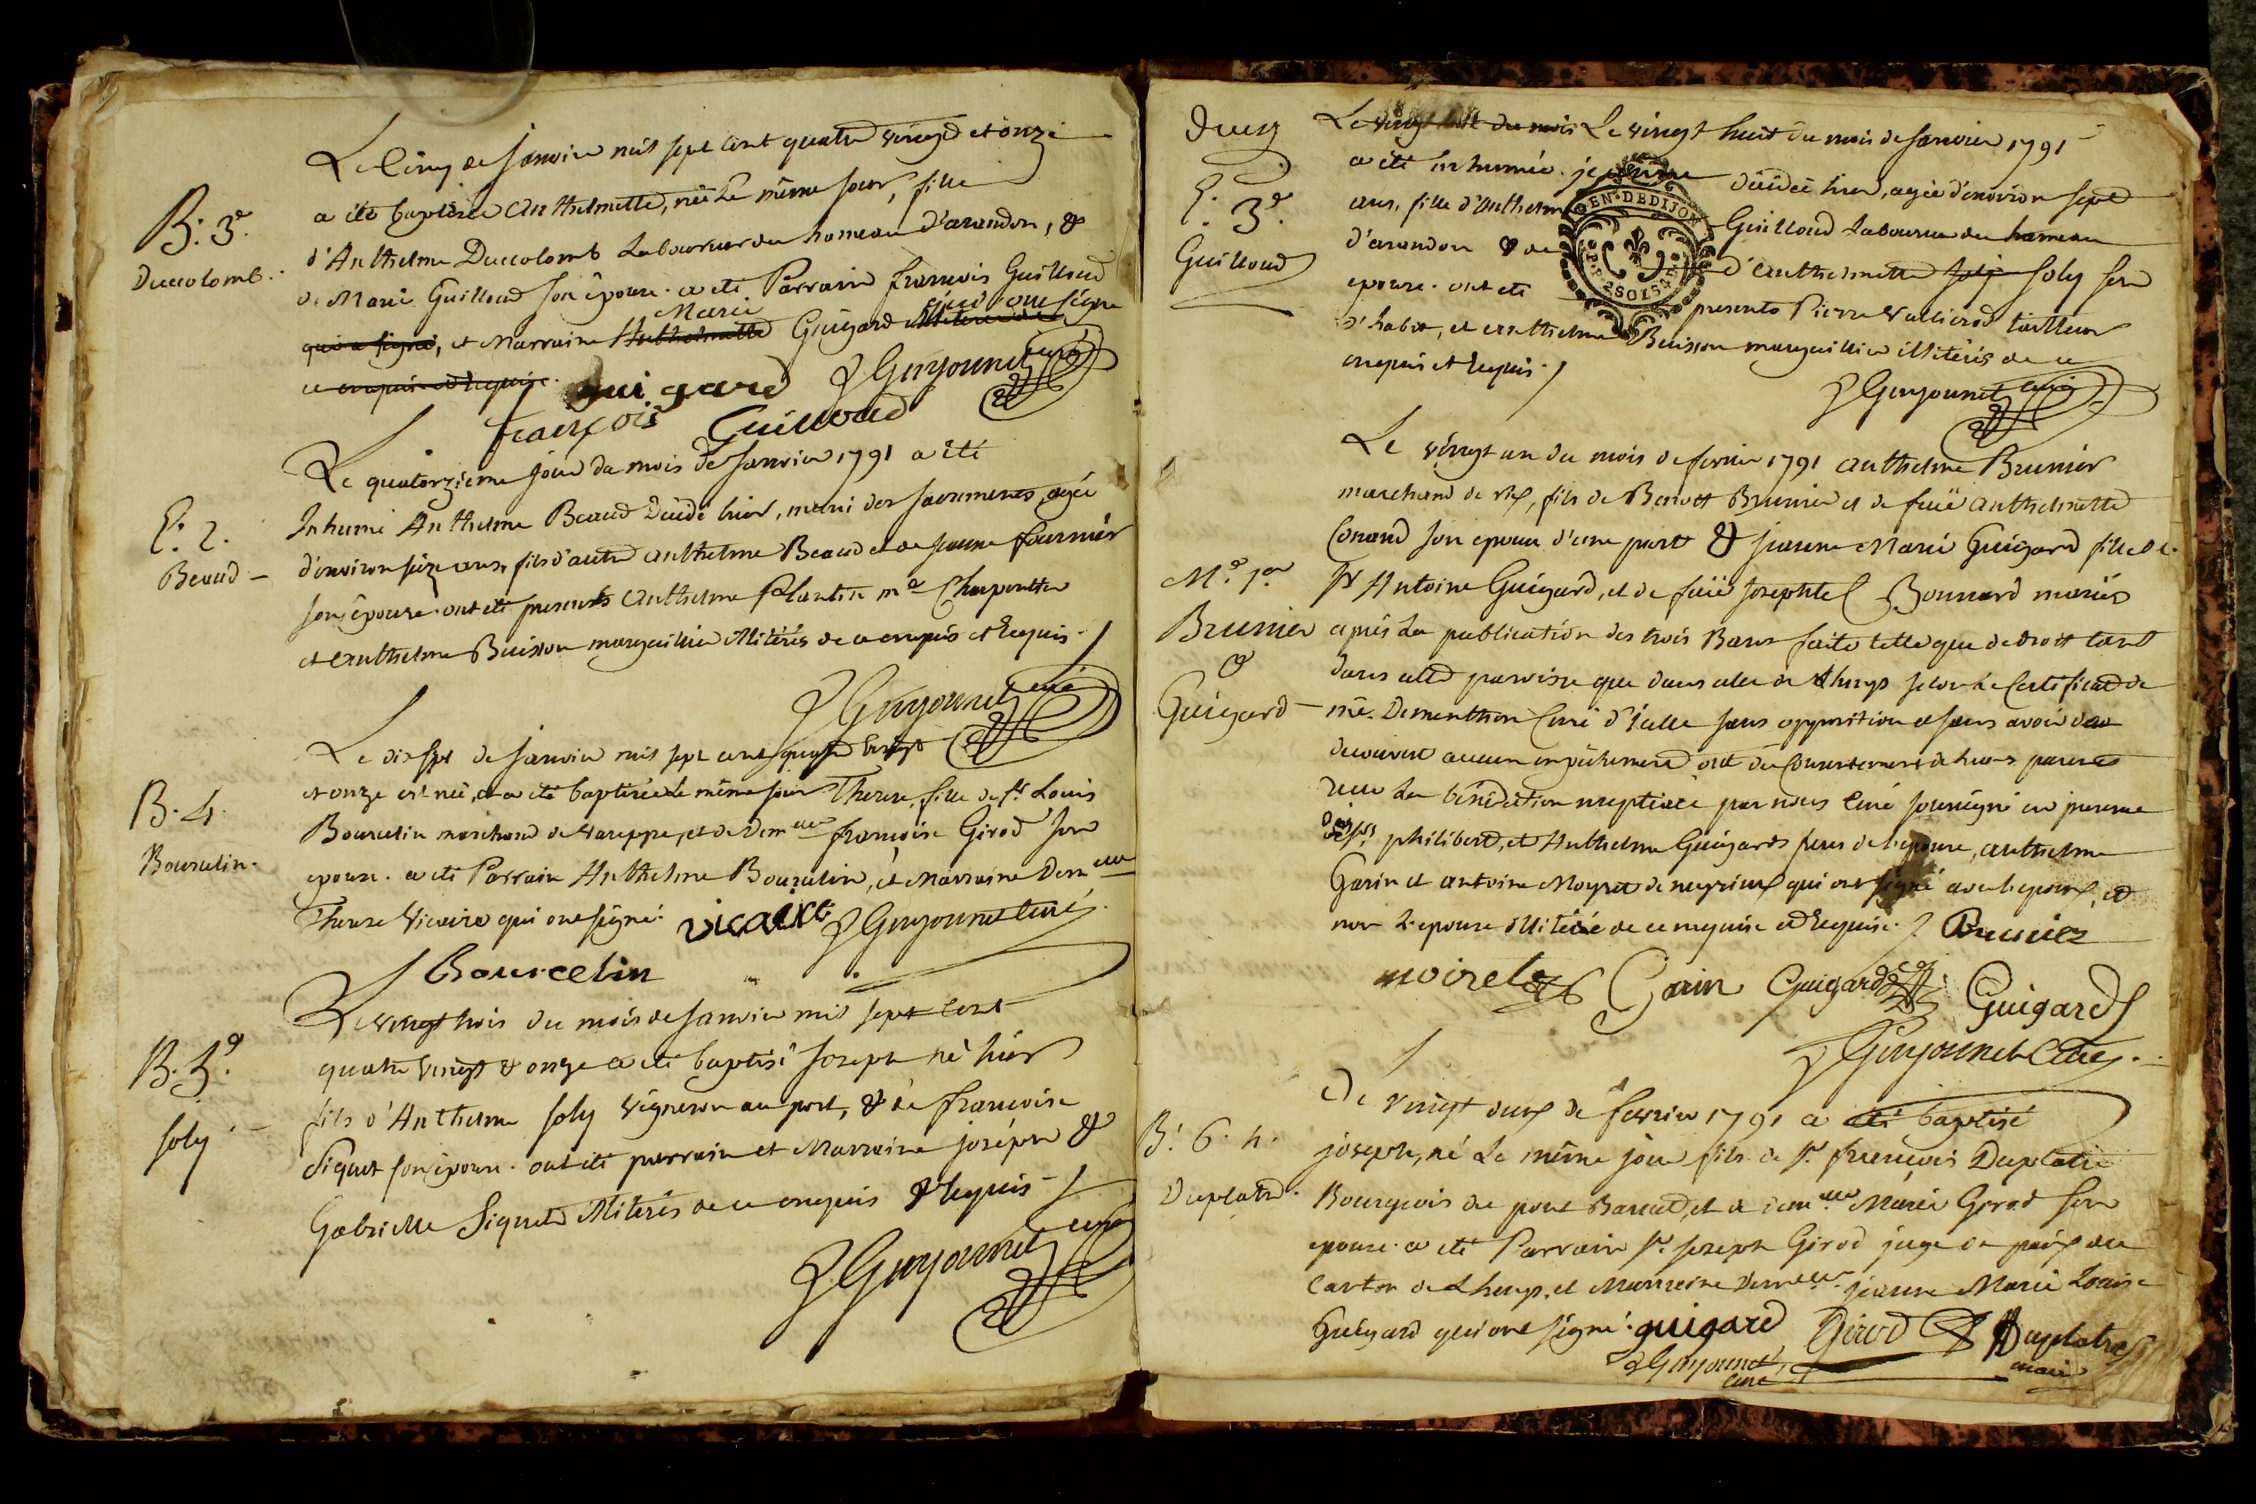 Le Cinq de Janvier mil sept cent quatre vingt et onze
B. 3e.
a été baptisée Anthelmette, née le même jour, fille
Duccolomb.
d'Anthelme Duccolomb Laboureur du hameau d'arandon, &
de Marie Guilloud son épouse. a été Parrain françois Guilloud
Marie
qui ont signé
qui a signé, et Marraine Anthelmette Guigard illiterée de
ce enquise et requise.
guigard
J Guyonnet curé
françois Guilloud
Le quatorzieme jour du mois de Janvier 1791 a été
E. 2.
Inhumé Anthelme Beaud Décédé hier, muni des sacrements, agée
Beaud
d'environ seize ans, fils d'autre anthelme Beaud et de jeanne fournier
son épouse. ont été presents anthelme Plantin md Charpentier
et anthelme Buisson marguillier illiterés de ce enquis et requis.
J Guyonnet curé
Le dix sept de Janvier mil sept cent quatre vingt
B. 4.
et onze est née, et a été baptisée le même jour Therese, fille de sr Louis
Bourcelin.
Bourcelin marchand de vareppe, et de Demlle françoise Girod son
epouse. a été Parrain Anthelme Bourcelin, et Marraine Demlle
Therese Vicaire qui ont signé.
vicaire J Guyonnet Curé
Bourcelin
Le vingt trois du mois de Janvier mil sept cent
B. 5e.
quatre vingt & onze a été baptisé Joseph né hier
Joly
fils d'Anthelme Joly Vigneron au port, & de françoise
Siquet son épouse. ont été parrain et Marraine joseph &
Gabrielle Siquet illiterés de ce enquis & requis
J. Guyonnet curé
Le vingt du mois Le vingt huit du mois de Janvier 1791
E. 3e.
Guilloud
a été inhumée. jeanne Décédée hier, agée d'environ sept
ans, fille d'Anthelme Guilloud Laboureur du hameau
d'arandon & de d'anthelmette Joly Joly son
epouse. ont été presents Pierre Vallierod tailleur
d'habit, et anthelme Buisson marguillier illiterés de ce
enquis et requis.
GEN. DE DIJON
J Guyonnet curé
Le vingt un du mois de fevrier 1791 anthelme Brunier
marchand de fils de Benoit Brunier et de feüe anthelmette
Conand son epouse d'une part & jeanne Marie Guigard fille de
Me. 1er
Sr Antoine Guigard, et de feüe Josephte Bonnard mariés
Brunier
après la publication des trois Bans faite telle que de droit tant
&
dans cette paroisse que dans celle de Lhuys selon le Certificat de
Guigard
mre. Dementhon Curé d'icelle sans opposition et sans avoir
decouvert aucun empéchement ont du Consentement de leurs parents
recu la bénédiction nuptiale par nous Curé soussigné en presence
des srs philibert, et Anthelme Guigards freres de l'epouse, anthelme
Garin et antoine Moyret de neyrieux qui ont signé avec l'epoux, et
non l'epouse illiterée de ce enquise et requise. Brunier
moiret Garin Guigard Guigard
J Guyonnet Curé.
Le vingt deux de fevrier 1791 a été baptisé
B. 6. 4.
joseph, né le même jour fils de sr. françois Duplatre
Duplatre.
Bourgeois du pont Barrad, et de demlle Marie Girod son
epouse. a été Parrain sr. joseph Girod juge de paix du
Canton de Lhuys. et Marraine Demlle jeanne Marie Louise
Guigard qui ont signé. guigard Girod Duplatre
J Guyonnet curé
maire